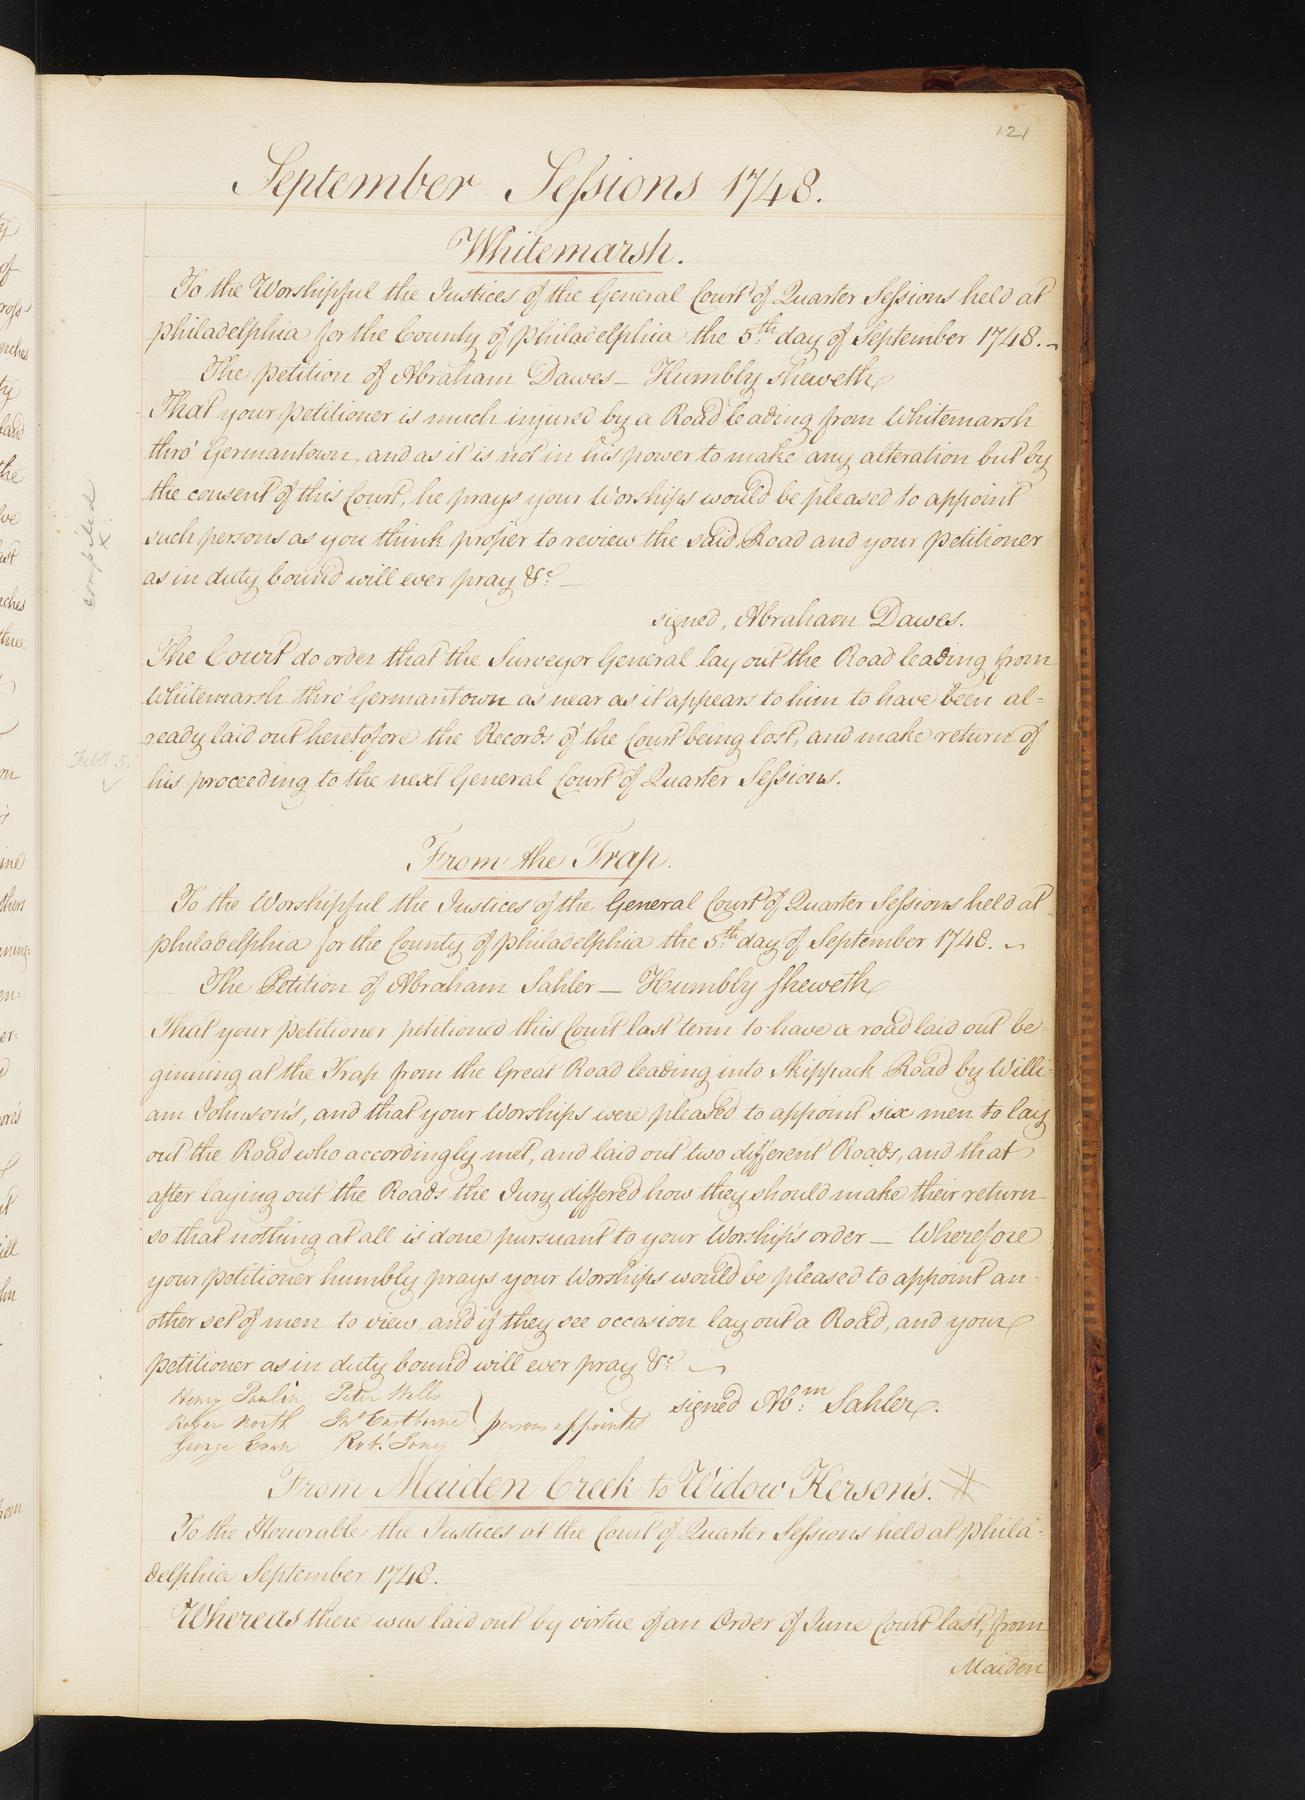 121
September Sessions 1748.
Whitemarsh.
To the Worshipful the Justices of the General Court of Quarter Sessions held at
Philadelphia for the County of Philadelphia the 5th day of September 1748.
The Petition of Abraham Dawes — Humbly sheweth
That your Petitioner is much injured by a Road leading from Whitemarsh
thro' Germantown, and as it is not in his power to make any alteration but by
the consent of this Court, he prays your Worships would be pleased to appoint
such persons as you think proper to review the said Road and your Petitioner
as in duty bound will ever pray &c —
signed, Abraham Dawes.
The Court do order that the Surveyor General lay out the Road leading from
Whitemarsh thro' Germantown as near as it appears to him to have been al=
ready laid out heretofore the Records of the Court being lost, and make return of
his proceeding to the next General Court of Quarter Sessions.
From the Trap.
To the Worshipful the Justices of the General Court of Quarter Sessions held at
Philadelphia for the County of Philadelphia the 5th day of September 1748.
The Petition of Abraham Sahler — Humbly sheweth
That your Petitioner petitioned this Court last term to have a road laid out be=
ginning at the Trap from the Great Road leading into Skippack Road by Willi=
am Johnson's, and that your Worships were pleased to appoint six men to lay
out the Road who accordingly met, and laid out two different Roads, and that
after laying out the Roads the Jury differed how they should make their return
so that nothing at all is done pursuant to your Worship's order — Wherefore
your petitioner humbly prays your Worships would be pleased to appoint an=
other set of men to view and if they see occasion lay out a Road, and your
petitioner as in duty bound will ever pray &c
Henry Pawlin Peter Wells
Roger North Jno Eastburne } persons appointed
George Robt Jones
signed Abm: Sahler.
From Maiden Creek to Widow Kerson's. #
To the Honorable the Justices at the Court of Quarter Sessions held at Phila=
delphia September 1748.
Whereas there was laid out by virtue of an Order of June Court last, from
Maiden